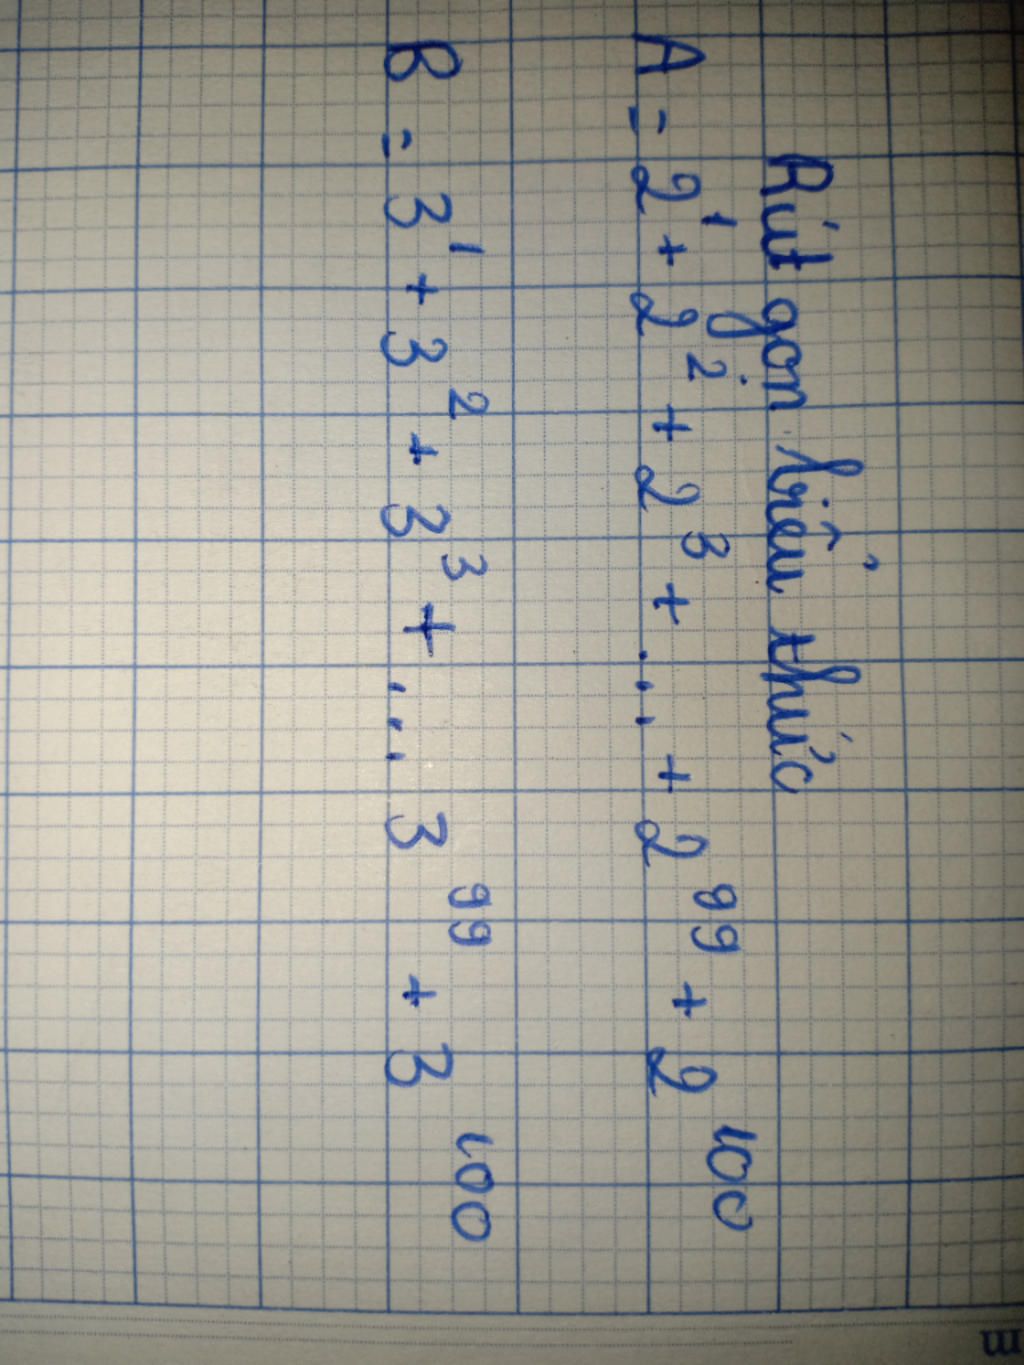 Rút gọn biểu thức
A = 2¹ + 2² + 2³ + ... + 2⁹⁹ + 2¹⁰⁰
B = 3¹ + 3² + 3³ + ... 3⁹⁹ + 3¹⁰⁰
m